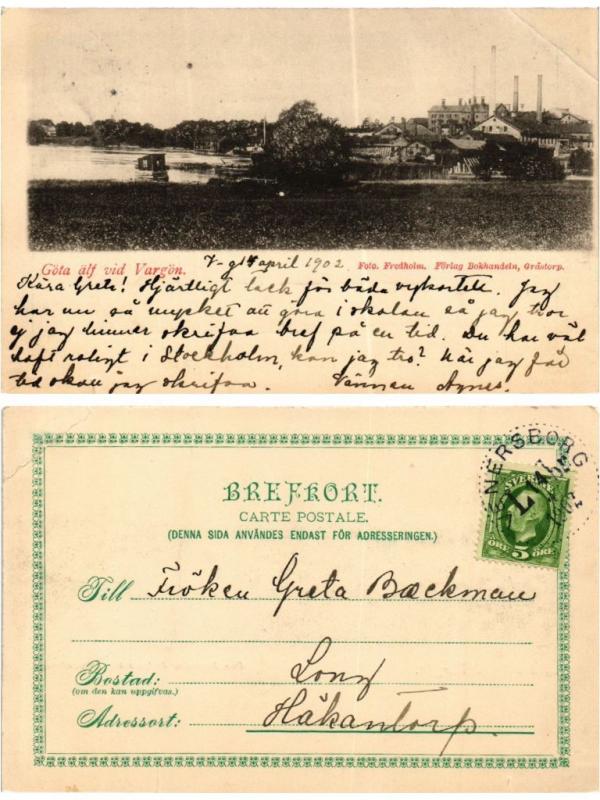 Göta älf vid Vargön.
V-g 14 april 1902
Foto. Fredholm. Förlag Bokhandeln, Grästorp.
Kära Greta! Hjärtligt tack för båda vykortett. Jag
har nu så mycket att göra i skolan så jag tror
ej jag hinner skrifva bref på en tid. Du har väl
haft roligt i Stockholm, kan jag tro? När jag får
tid skall jag skrifva. Vännen Agnes.
BREFKORT.
CARTE POSTALE.
(DENNA SIDA ANVÄNDES ENDAST FÖR ADRESSERINGEN.)
VENERSBORG
SVERIGE
5
ÖRE ÖRE
Till Fröken Greta Baeckman
Bostad: Long
(om den kan uppgifvas.)
Adressort: Håkantorp.